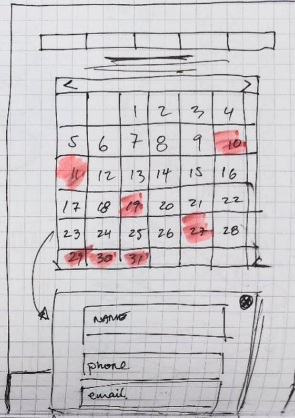 1 2 3 4
5 6 7 8 9 10
11 12 13 14 15 16
17 18 19 20 21 22
23 24 25 26 27 28
29 30 31
NAME
phone
email